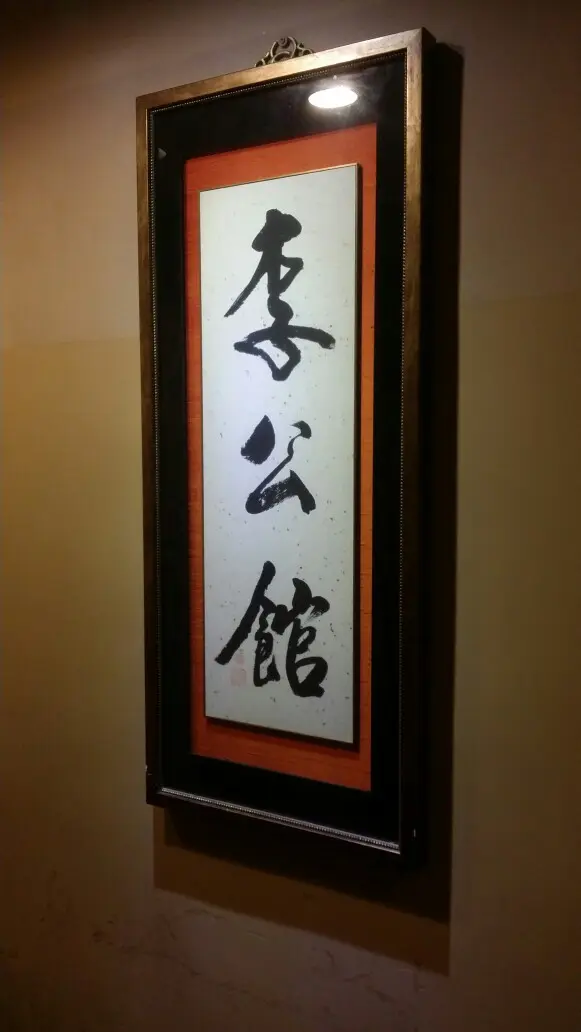 李公館